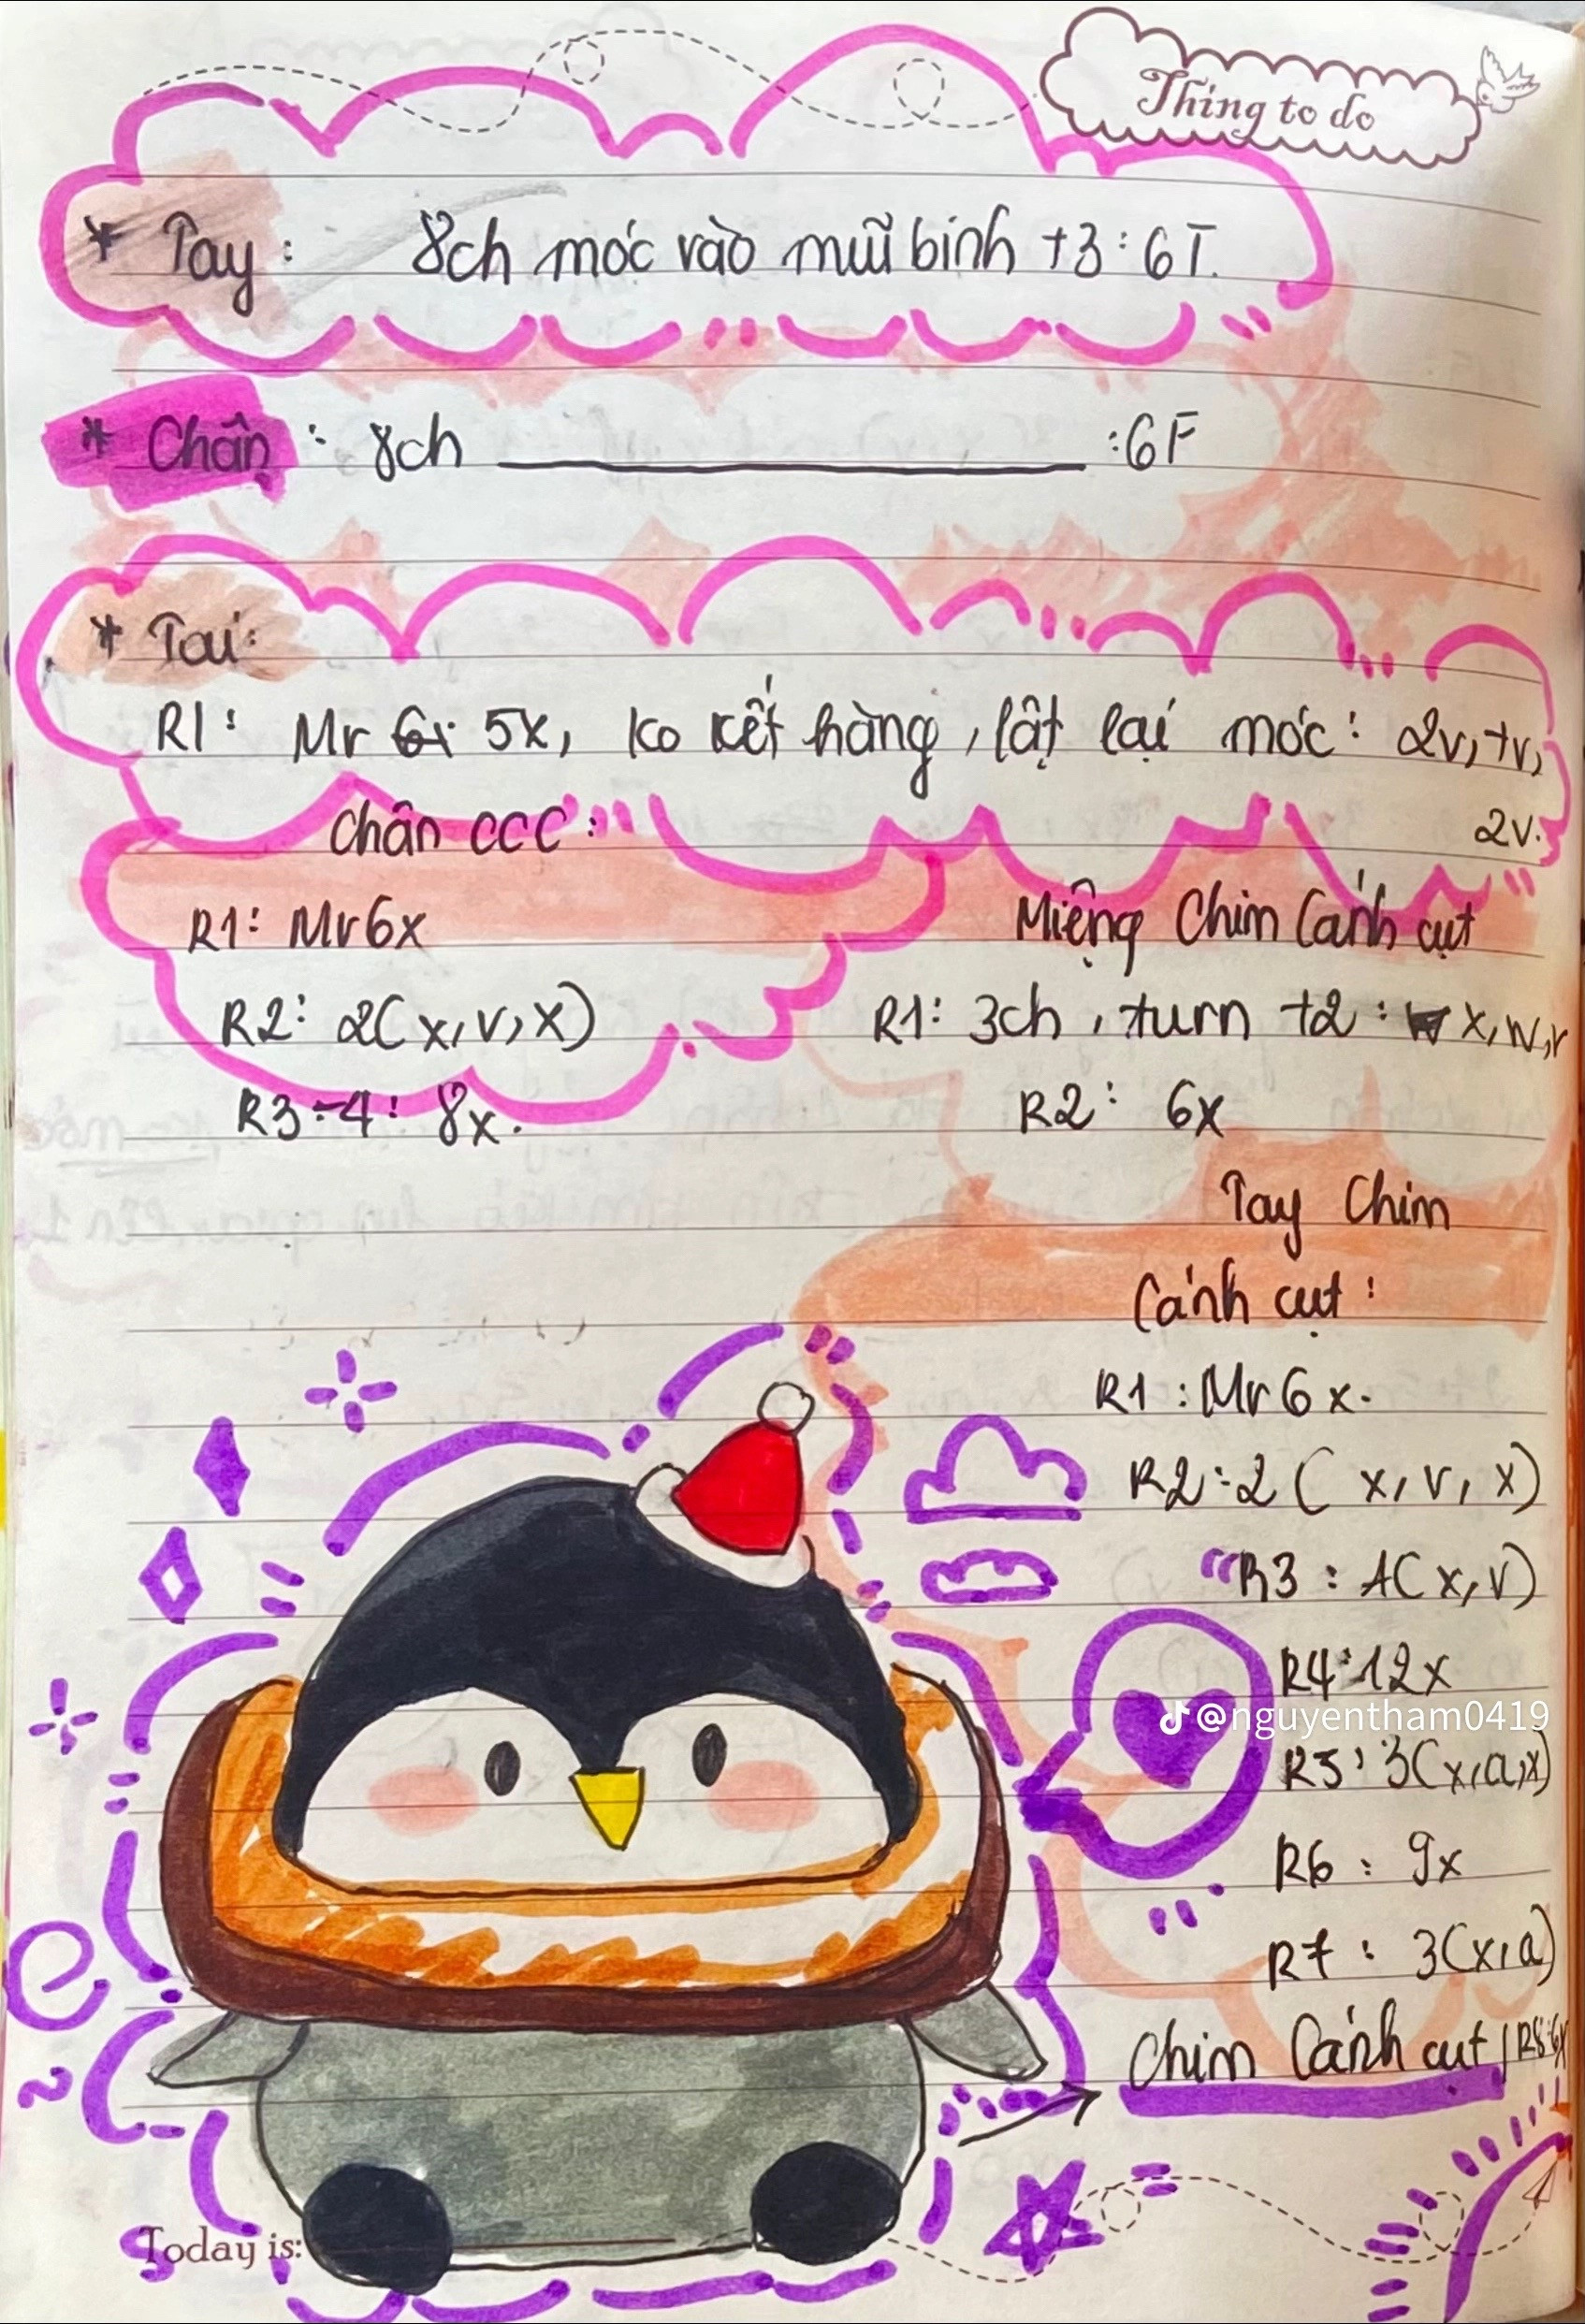 Thing to do
* Tay: 8ch móc vào mũi bính +3: 6T.
* Chân: 8ch ——— :6F
* Tai:
R1: Mr 5x, ko kết hàng, lật lại móc: 2v, tv,
2v.
Chân CCC:
R1: Mr 6x
R2: 2(x, v, x)
R3÷4: 8x.
Miệng Chim Cánh cụt
R1: 3ch, turn +2: x, w, r
R2: 6x
Tay Chim
Cánh cụt:
R1: Mr 6x.
R2: 2(x, v, x)
R3: 4(x, v)
R4: 12x
@nguyentham0419
R5: 3(x, a, x)
R6: 9x
R7: 3(x, a)
Chim Cánh cụt / R8: 6x
Today is: